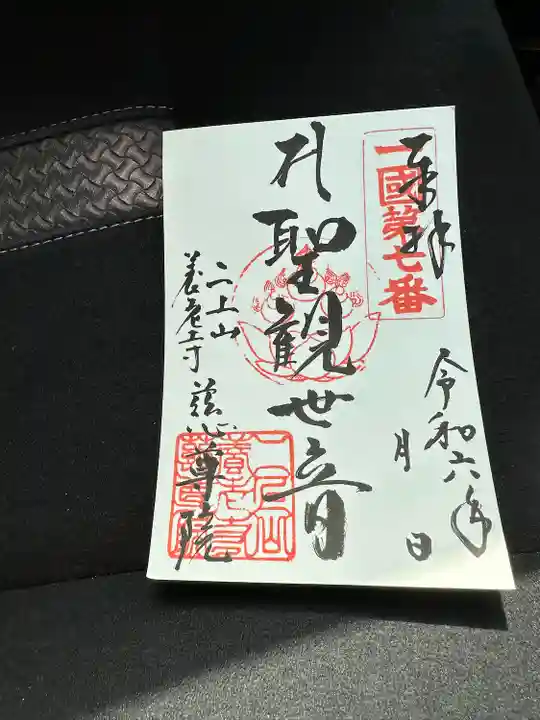 奉拝
一國第七番
令和六年
月 日
聖觀世音
二上山
養老寺 慈尊院